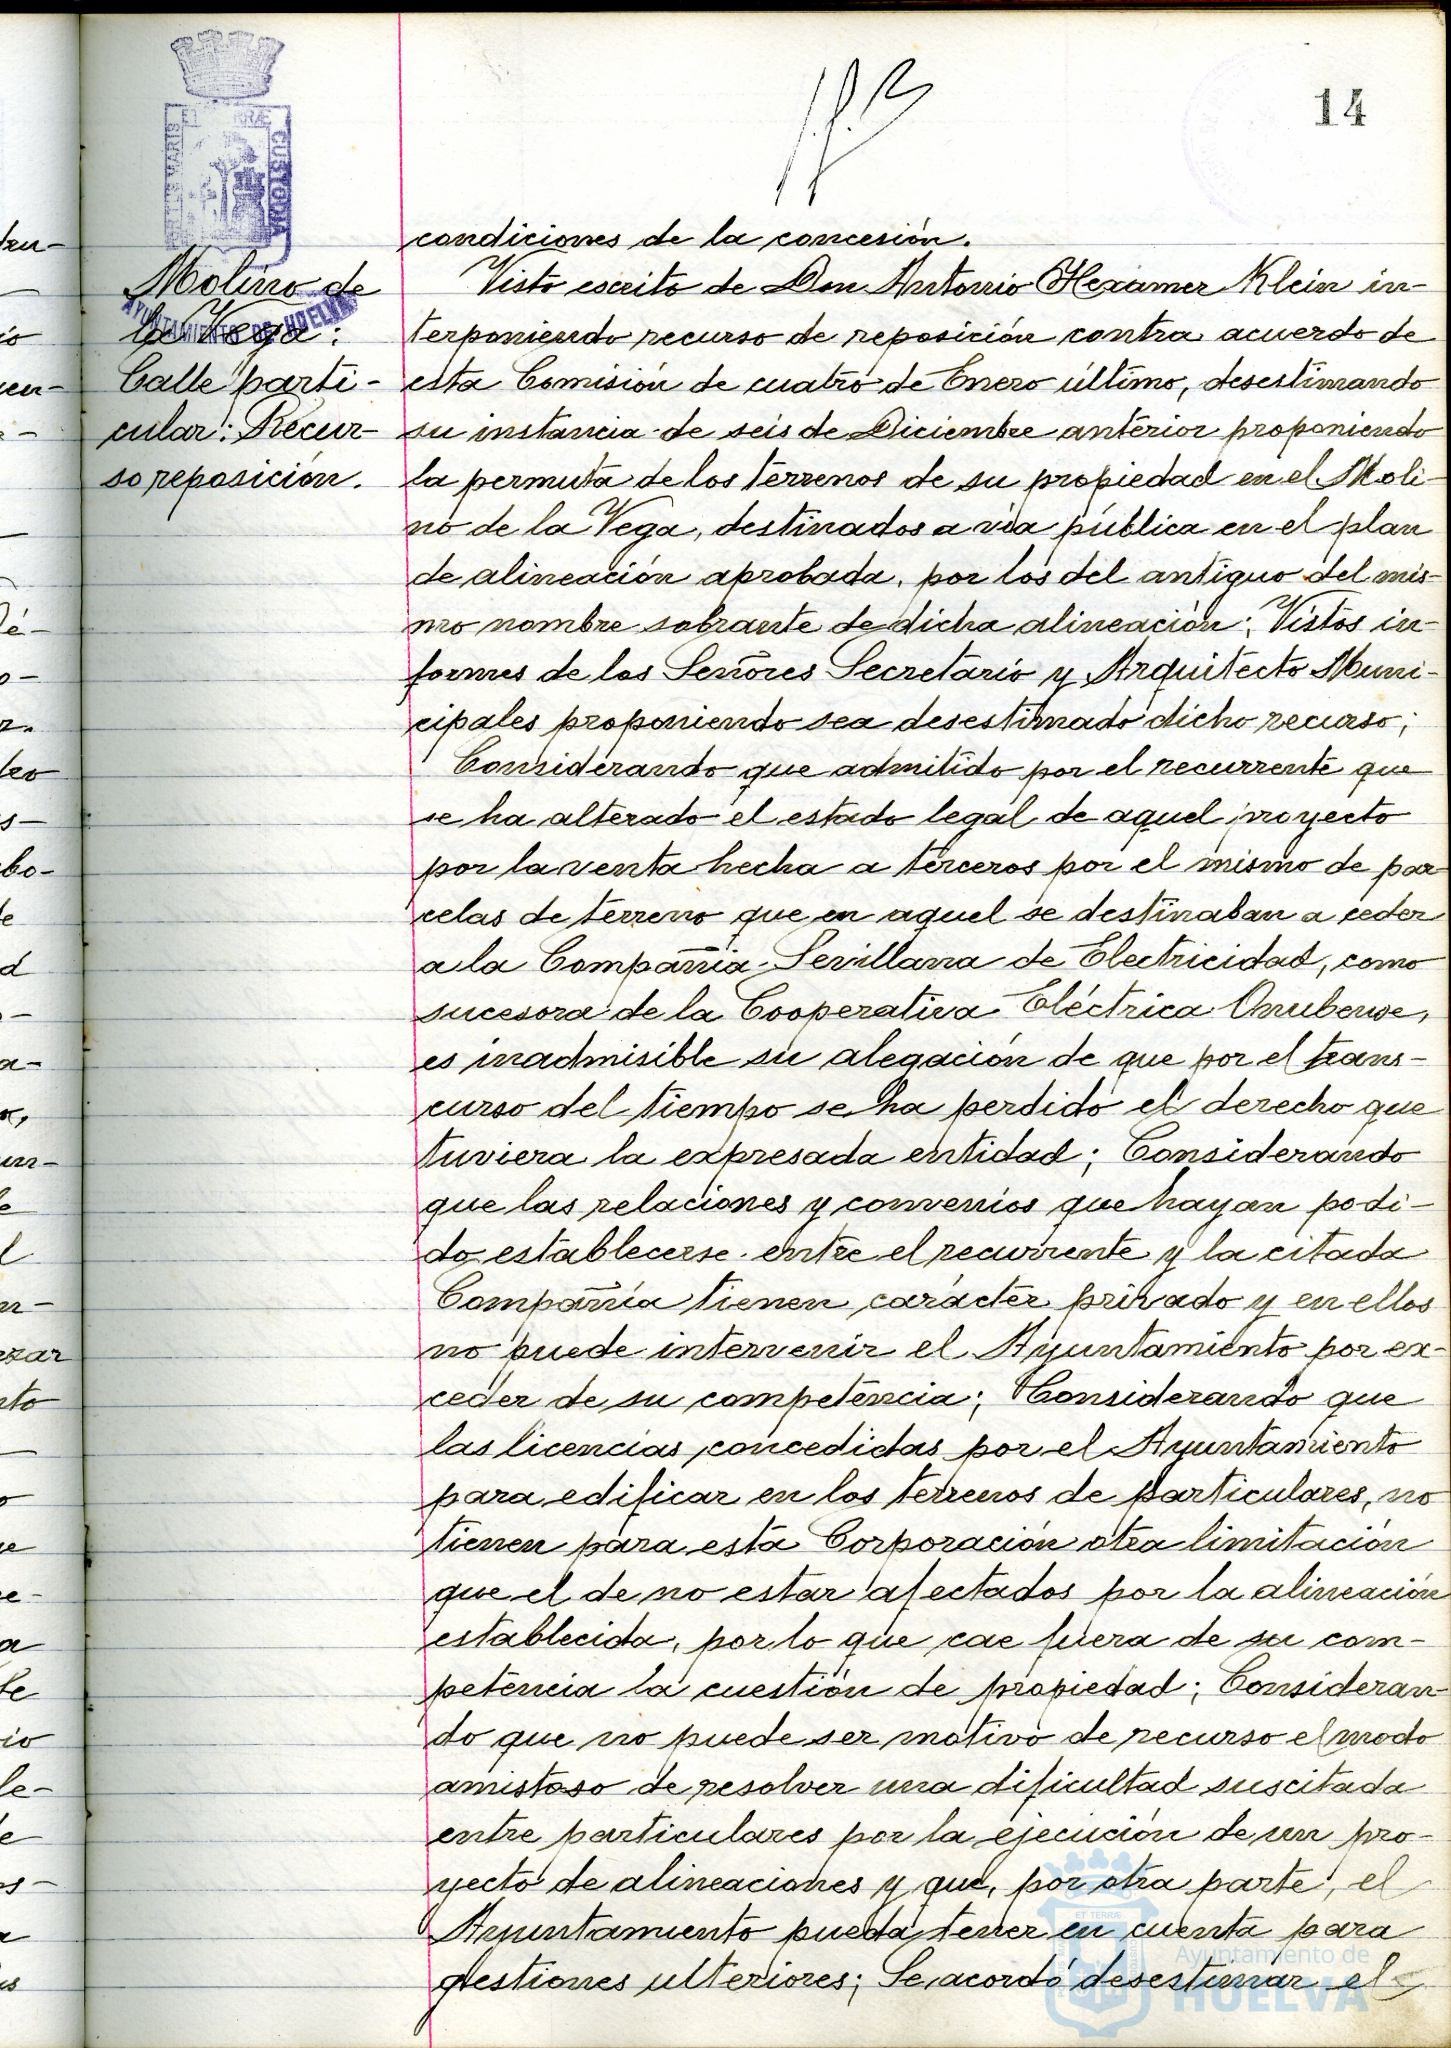 14
condiciones de la concesión.
Molino de
la Vega:
Calle parti-
cular: Recur-
so reposición.
AYUNTAMIENTO DE HUELVA
Visto escrito de Don Antonio Hexamer Klein in-
terponiendo recurso de reposición contra acuerdo de
esta Comisión de cuatro de Enero último, desestimando
su instancia de seis de Diciembre anterior proponiendo
la permuta de los terrenos de su propiedad en el Moli-
no de la Vega, destinados a vía pública en el plan
de alineación aprobada, por los del antiguo del mis-
mo nombre sobrante de dicha alineación; Vistos in-
formes de los Señores Secretario y Arquitecto Muni-
cipales proponiendo sea desestimado dicho recurso;
Considerando que admitido por el recurrente que
se ha alterado el estado legal de aquel proyecto
por la venta hecha a terceros por el mismo de par
celas de terreno que en aquel se destinaban a ceder
a la Compañia Sevillana de Electricidad, como
sucesora de la Cooperativa Eléctrica Onubense,
es inadmisible su alegación de que por el trans-
curso del tiempo se ha perdido el derecho que
tuviera la expresada entidad; Considerando
que las relaciones y convenios que hayan podi-
do establecerse entre el recurrente y la citada
Compañía tienen carácter privado y en ellos
no puede intervenir el Ayuntamiento por ex-
ceder de su competencia; Considerando que
las licencias concedidas por el Ayuntamiento
para edificar en los terrenos de particulares, no
tienen para esta Corporación otra limitación
que el de no estar afectados por la alineación
establecida, por lo que cae fuera de su com-
petencia la cuestión de propiedad; Consideran-
do que no puede ser motivo de recurso el modo
amistoso de resolver una dificultad suscitada
entre particulares por la ejecución de un pro-
yecto de alineaciones y que, por otra parte, el
Ayuntamiento pueda tener en cuenta para
gestiones ulteriores; Se acordó desestimar el
Ayuntamiento de
HUELVA